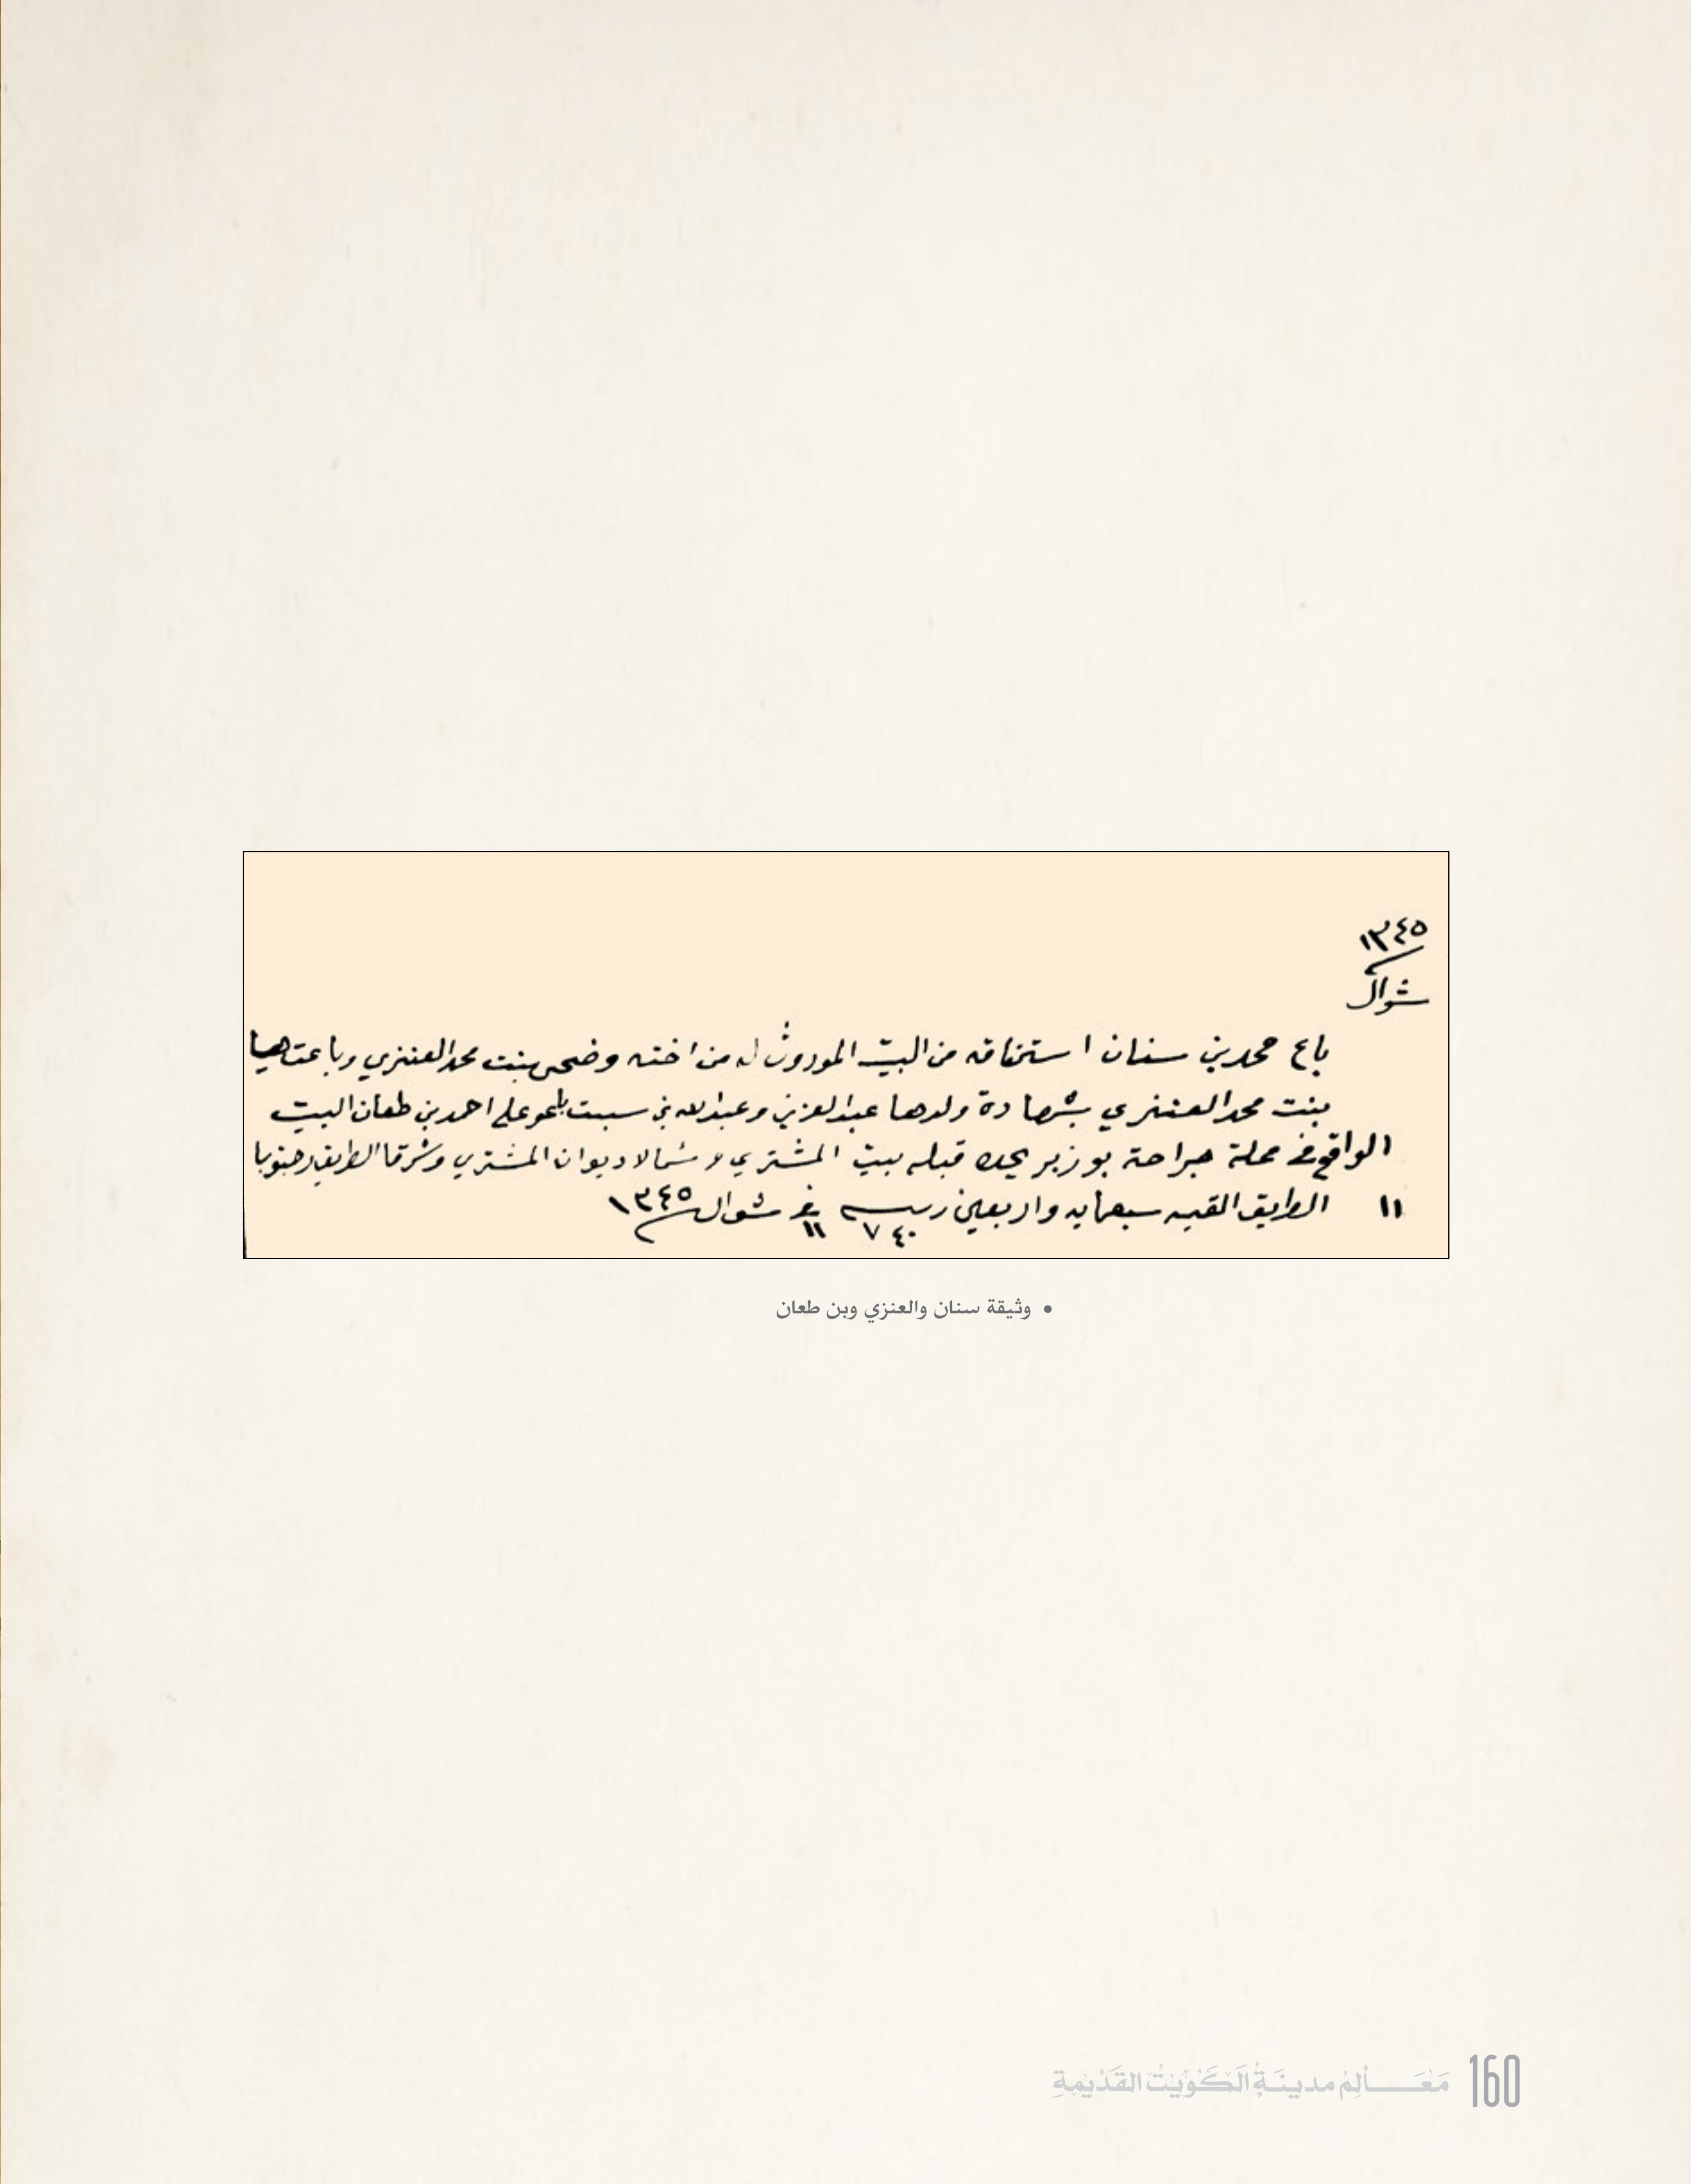 ١٣٤٥
شوال
باع محمد بن سنان استحقاقه من البيت الموروث له من اخته وضحى بنت محمد العنزي وباعت هيا
بنت محمد العنزي بشهادة ولدها عبدالعزيز وعبدالله بن سبت على احمد بن طعان البيت
الواقع في محلة براحة بوزبر يحده قبله بيت المشتري وشمالا ديوان المشتري وشرقا الطريق وجنوبا
١١ الطريق القيمه سبعمايه واربعين ربيه ٧٤٠ في ١١ شوال ١٣٤٥
• وثيقة سنان والعنزي وبن طعان
160 معالم مدينة الكويت القديمة